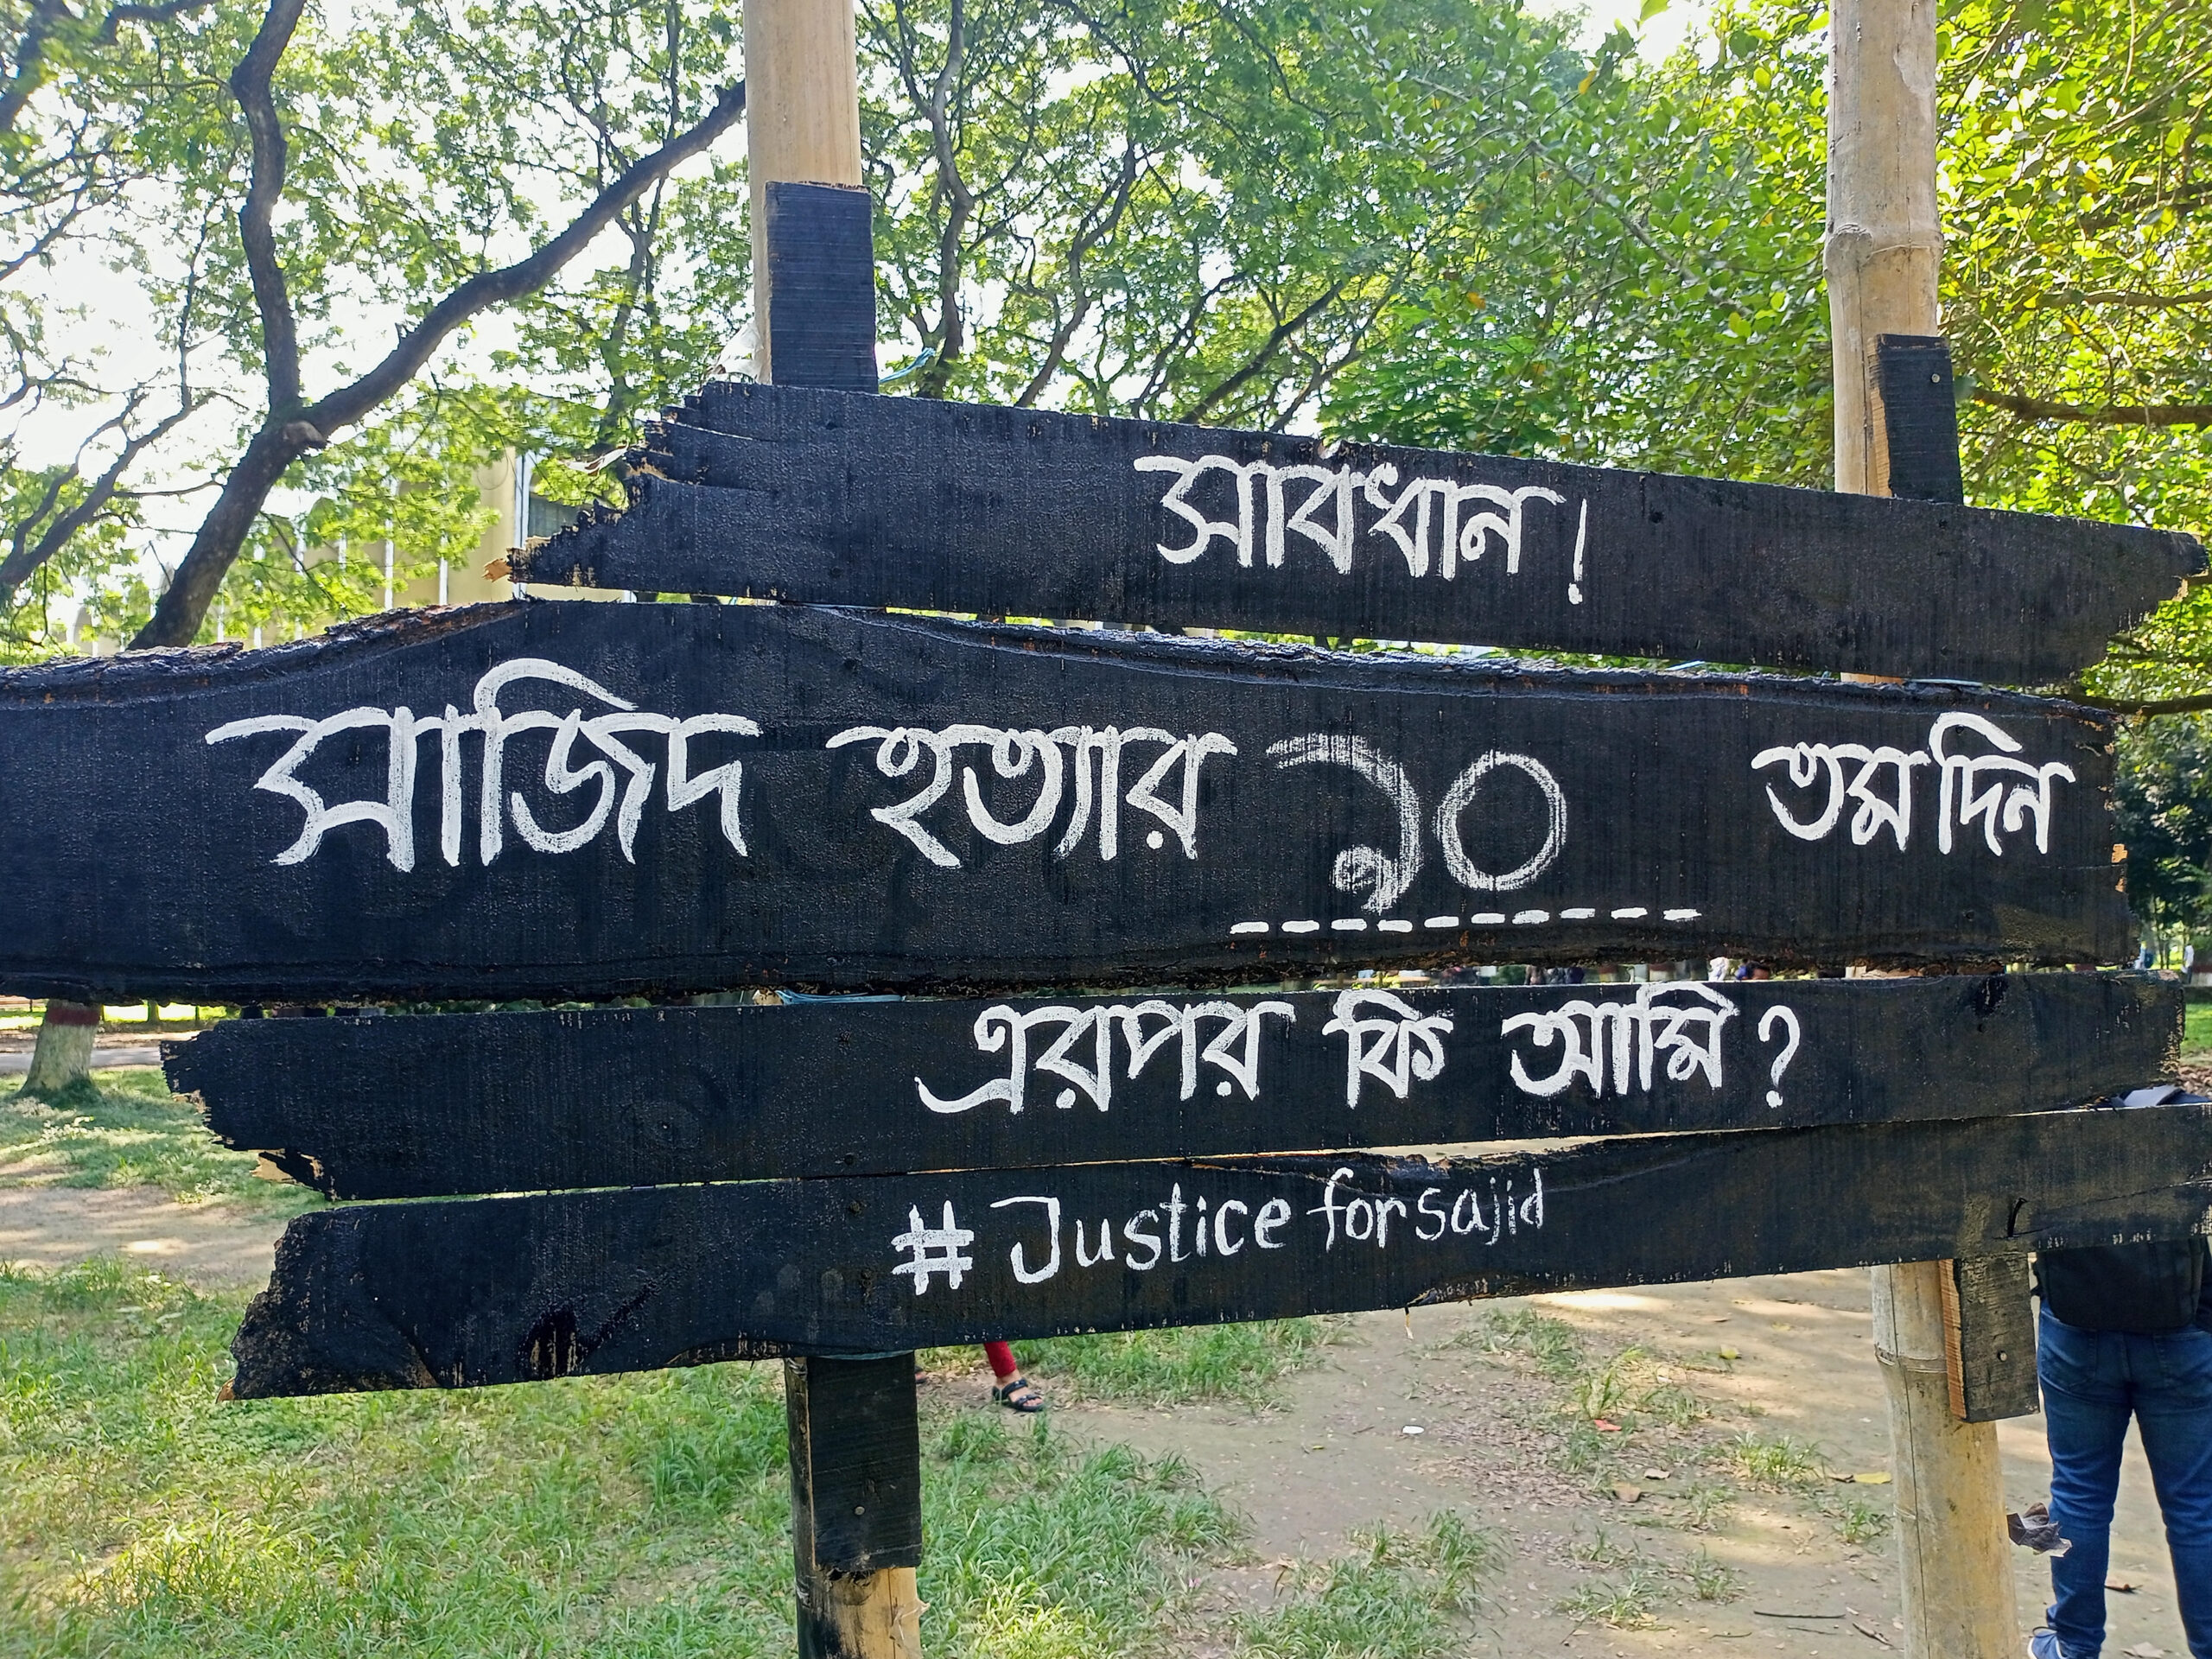 সাবধান!
সাজিদ হত্যার ৯০ তম দিন
এরপর কি আমি?
#Justice for sajid